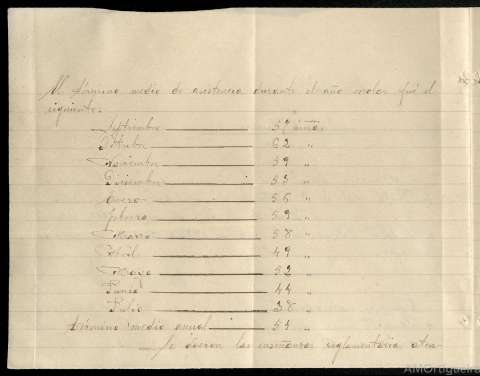 El término medio de asistencia durante el año escolar fué el
siguiente:
Septiembre 57 niños
Octubre 62 "
Noviembre 59 "
Diciembre 55 "
Enero 56 "
Febrero 59 "
Marzo 58 "
Abril 49 "
Mayo 52 "
Junio 44 "
Julio 38 "
Término medio anual 53 "
Se dieron las enseñanzas reglamentarias
AMOrtigueira